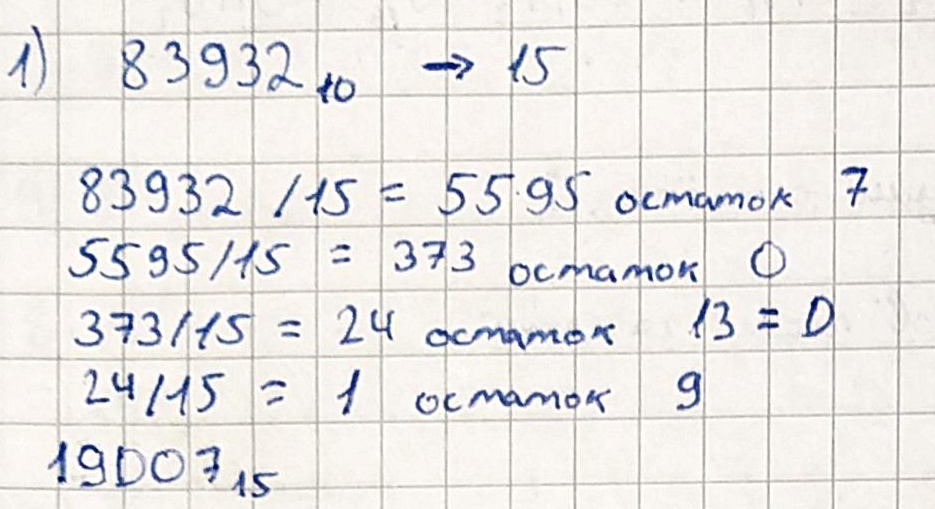 1) 83932₁₀ → 15
83932 /15 = 5595 остаток 7
5595/15 = 373 остаток 0
373/15 = 24 остаток 13 = D
24/15 = 1 остаток 9
19D07₁₅